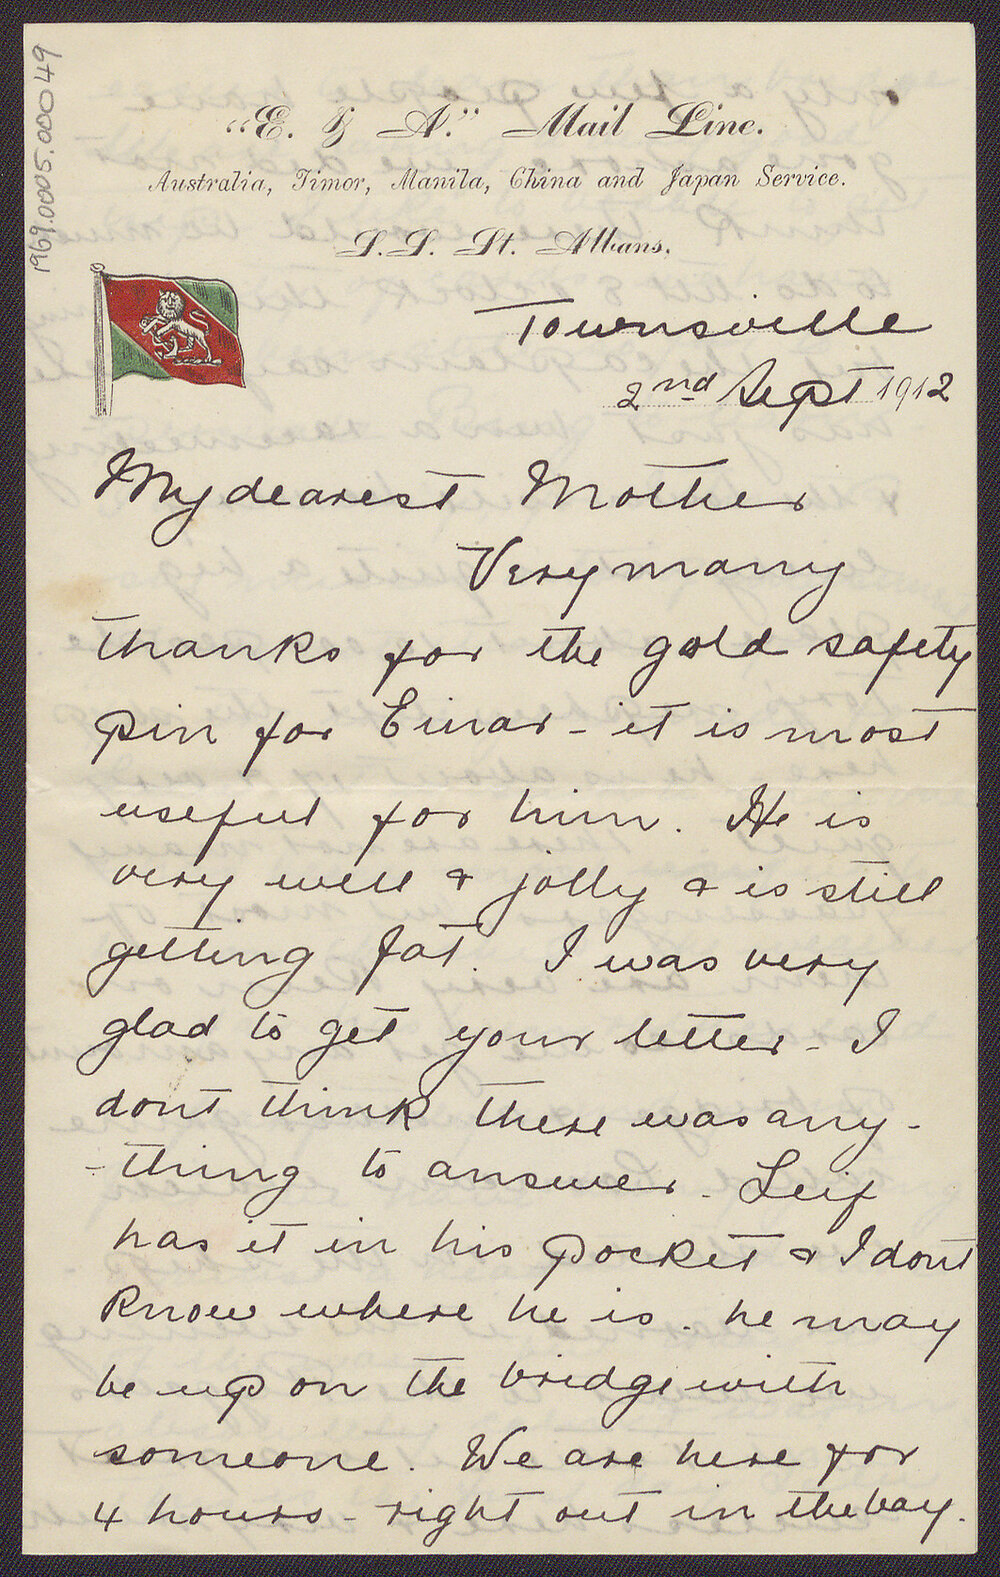 1969.0005.000049
"E. & A." Mail Line.
Australia, Timor, Manila, China and Japan Service.
S.S. St. Albans.
Townsville
2nd Sept 1912
My dearest Mother
Very many
thanks for the gold safety
pin for Einar - it is most
useful for him. He is
very well & jolly & is still
getting fat. I was very
glad to get your letter - I
dont think there was any -
- thing to answer. Leif
has it in his pocket & I dont
know where he is. he may
be up on the bridge with
someone. We are here for
4 hours - right out in the bay.